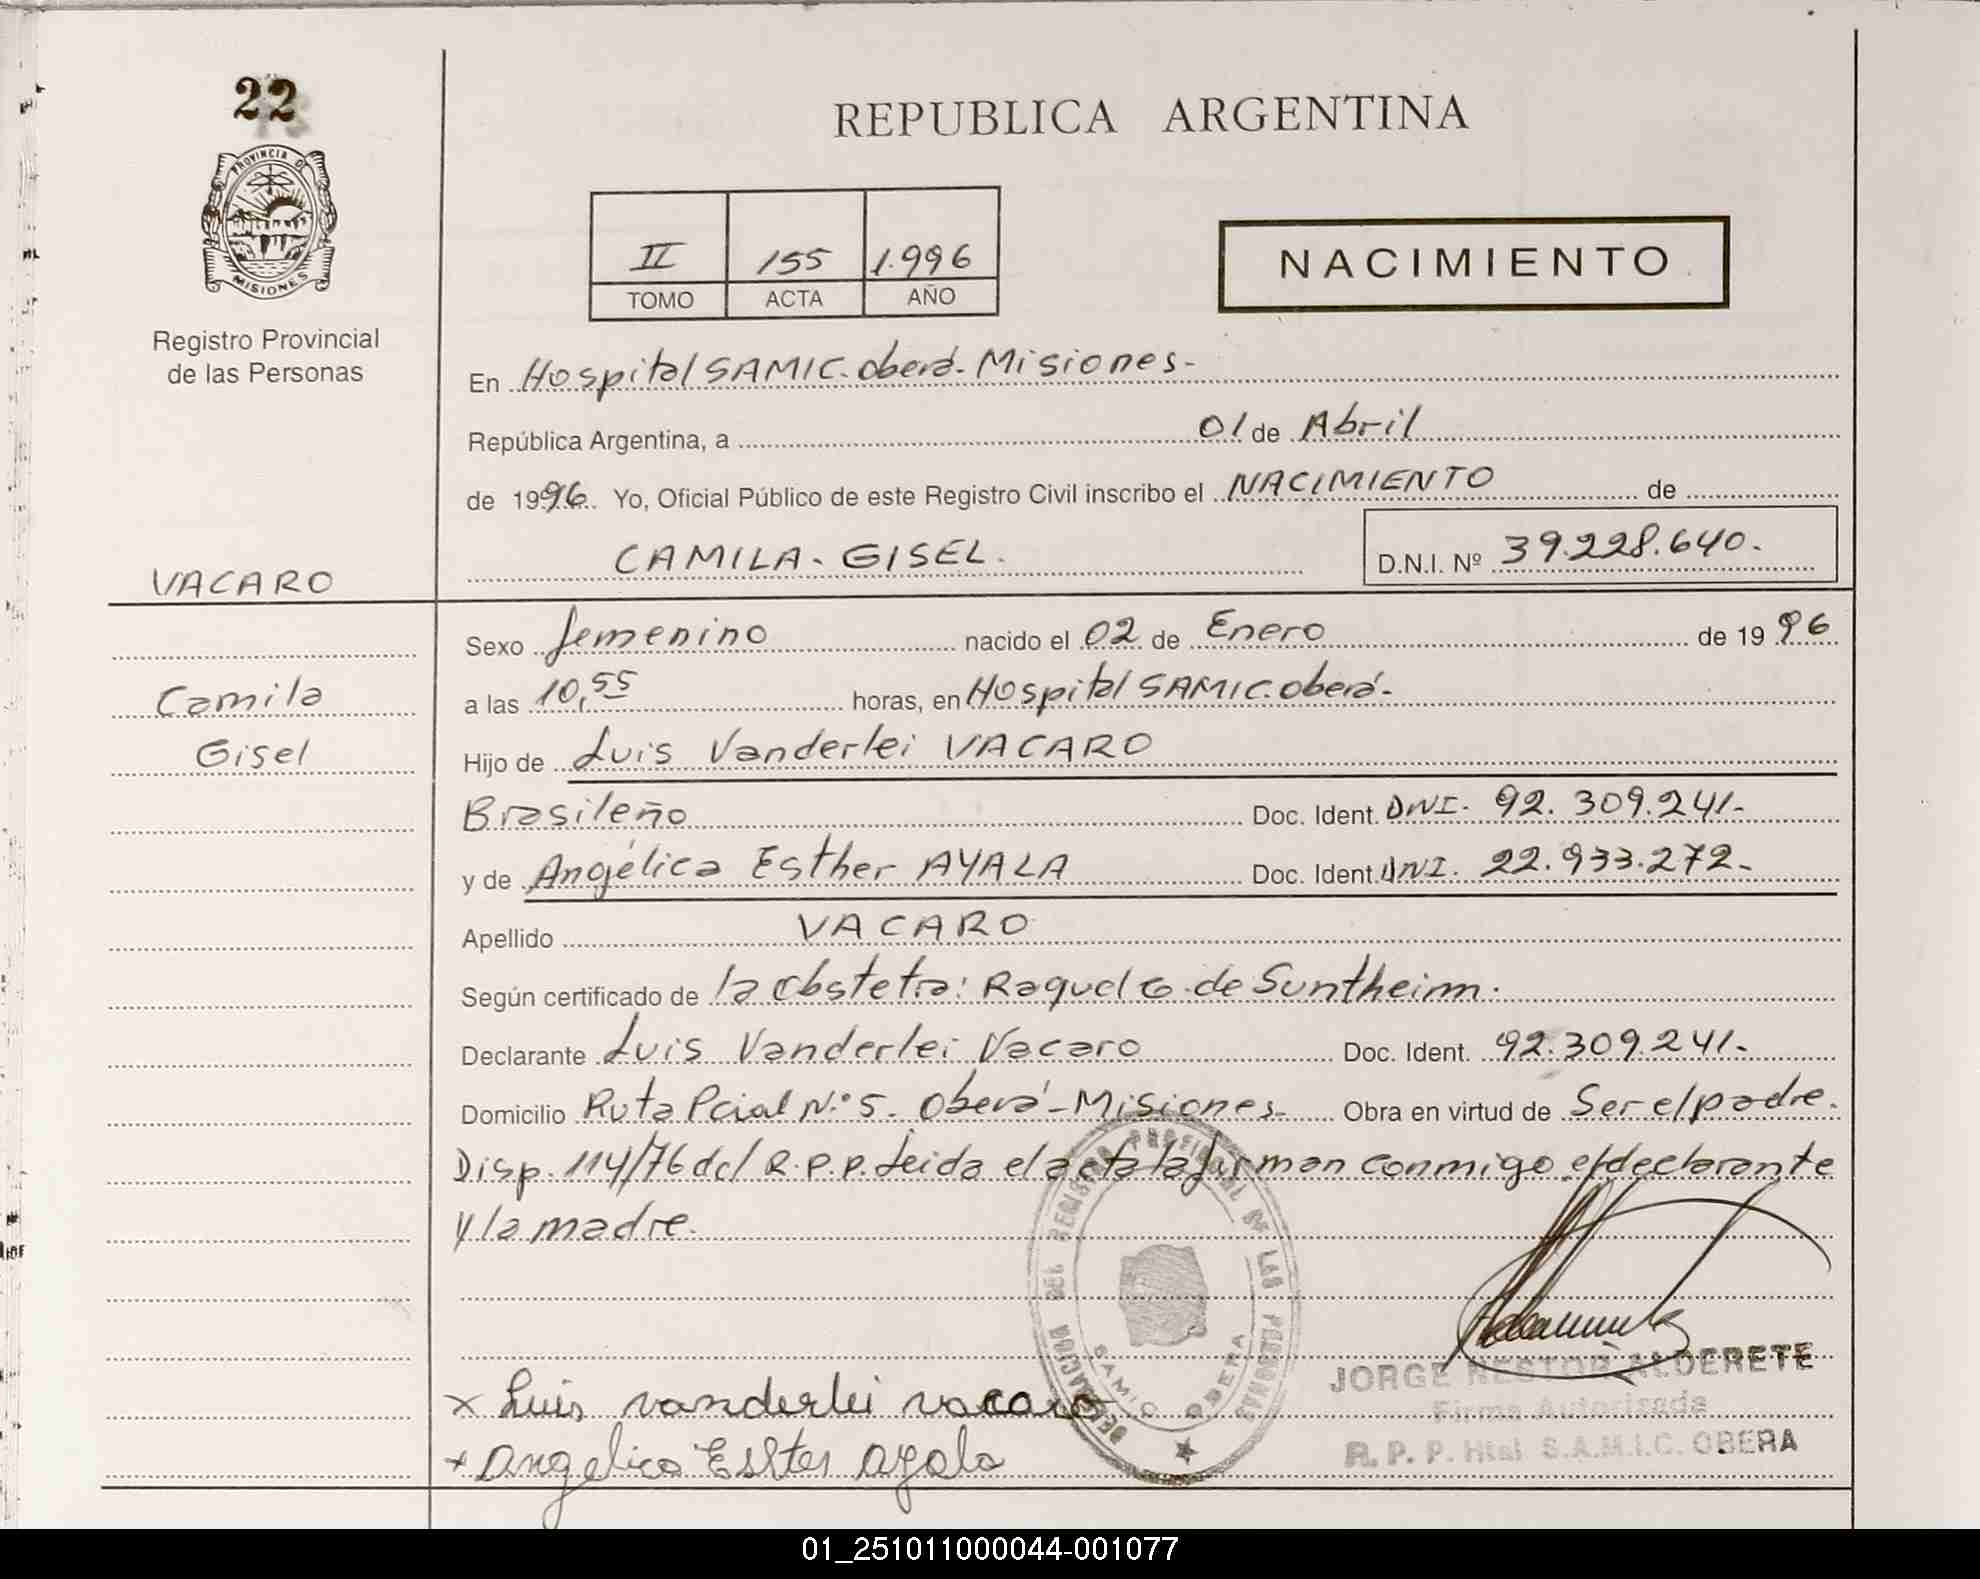 22
REPUBLICA ARGENTINA
PROVINCIA DE
MISIONES
II 155 1.996
TOMO ACTA AÑO
NACIMIENTO
Registro Provincial
de las Personas
En Hospital SAMIC. oberá. Misiones-
República Argentina, a 01 de Abril
de 1996. Yo, Oficial Público de este Registro Civil inscribo el NACIMIENTO de
VACARO
CAMILA. GISEL. D.N.I. Nº 39.228.640.
Sexo femenino nacido el 02 de Enero de 1996
Camila
a las 10,55 horas, en Hospital SAMIC. oberá-
Gisel
Hijo de Luis Vanderlei VACARO
Brasileño Doc. Ident. DNI. 92. 309.241-
y de Angélica Esther AYALA Doc. Ident. DNI. 22.933.272-
Apellido VACARO
Según certificado de la obstetra: Raquel G. de Suntheim.
Declarante Luis Vanderlei Vacaro Doc. Ident. 92.309.241-
Domicilio Ruta Pcial N.º 5. Oberá-Misiones- Obra en virtud de Ser el padre.
Disp. 114/76 del R.P.P. Leida el acta la firman conmigo el declarante
y la madre.
DELEGACION DEL REGISTRO PROVINCIAL DE LAS PERSONAS
SAMIC OBERA
JORGE NESTOR ALDERETE
Firma Autorizada
R. P. P. Htal. S.A.M.I.C. OBERA
x Luis vanderlei vacaro
x Angelica Esther ayala
01_251011000044-001077